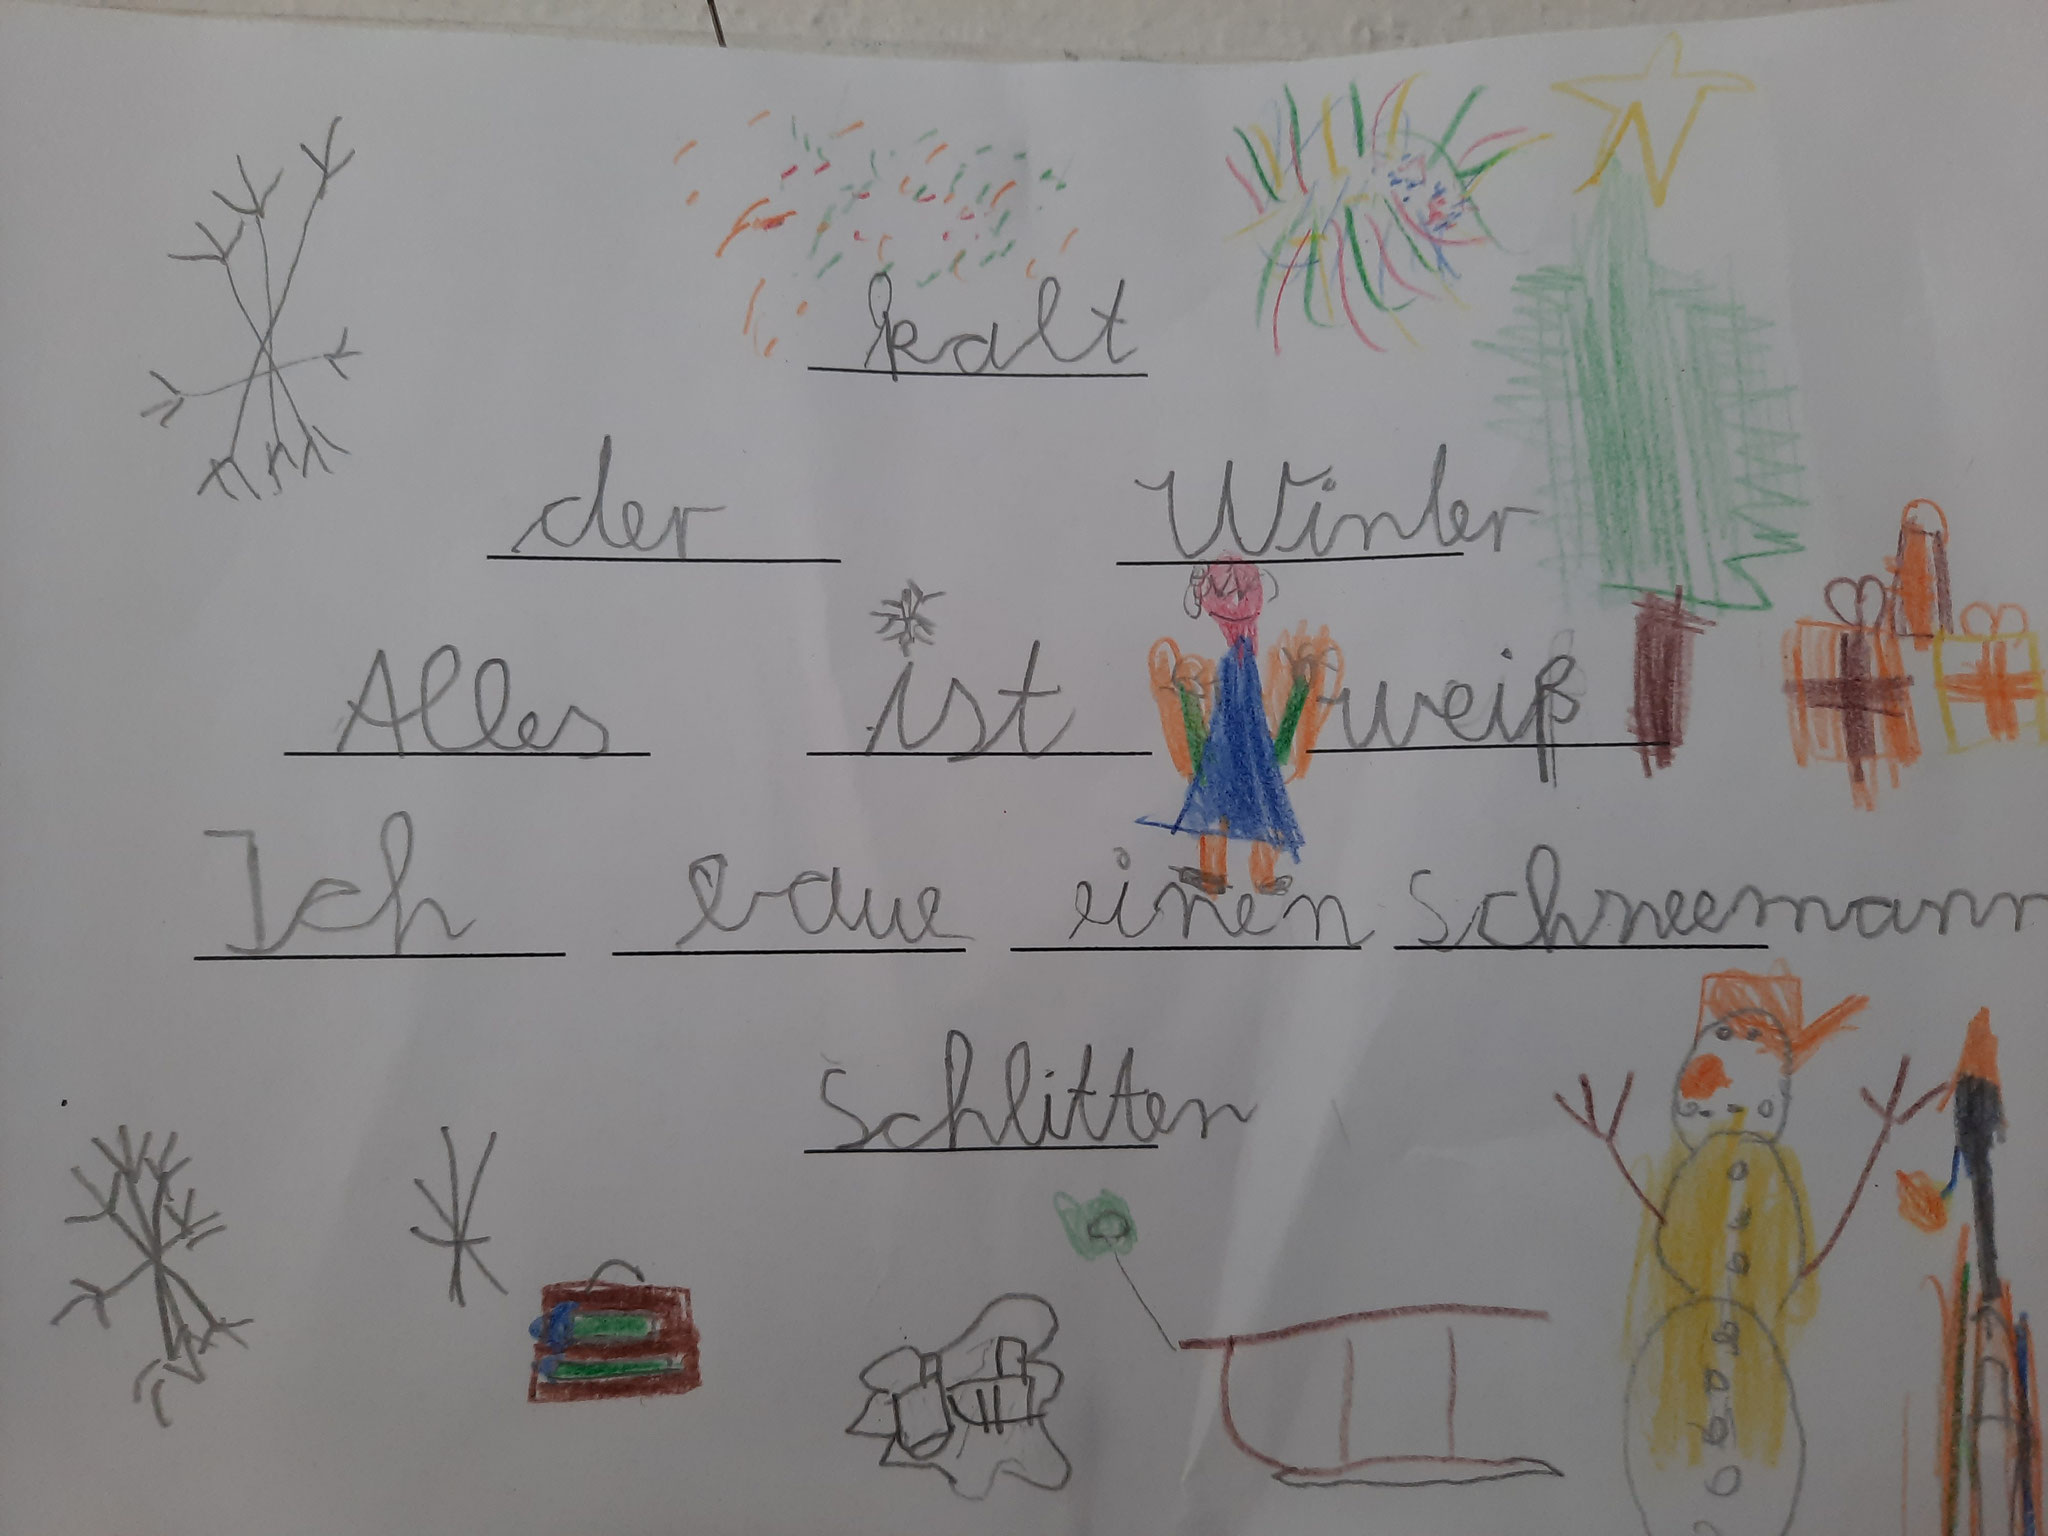 kalt
der Winter
Alles ist weiß
Ich baue einen Schneemann
Schlitten